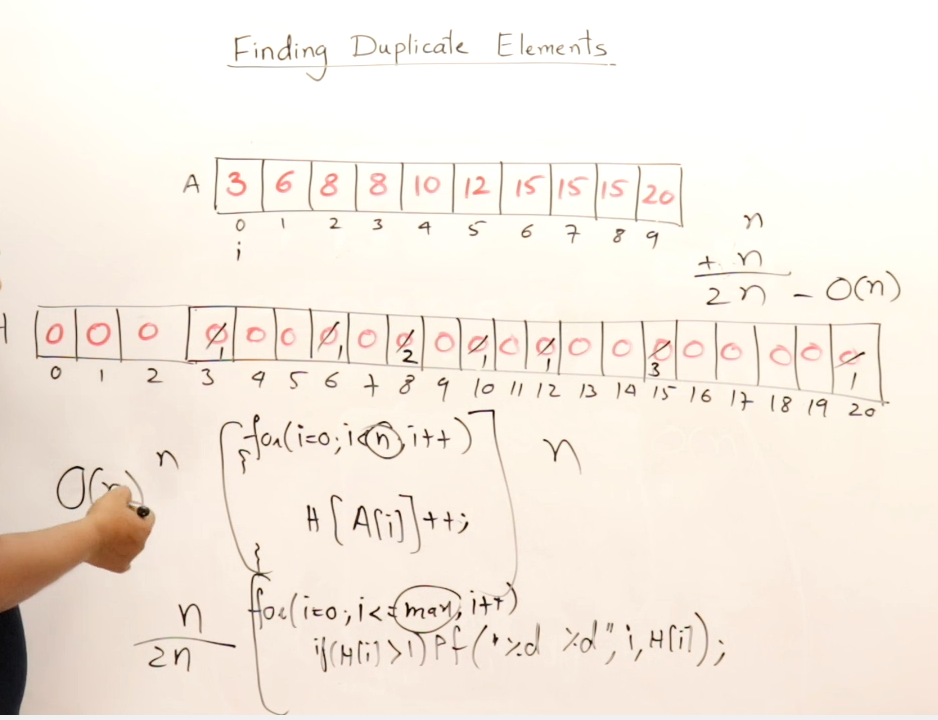 Finding Duplicate Elements
A 3 6 8 8 10 12 15 15 15 20
0 1 2 3 4 5 6 7 8 9
i
n
+ n
2n - O(n)
H 0 0 0 0 0 0 0 0 0 0 0 0 0 0 0 0 0 0 0 0 0
1 1 2 1 1 3 1
0 1 2 3 4 5 6 7 8 9 10 11 12 13 14 15 16 17 18 19 20
for(i=0; i<n; i++)
{
n
n
O(n)
H[A[i]]++;
}
for(i=0; i<=max; i++)
n
2n
if(H[i]>1) Pf("%d %d", i, H[i]);